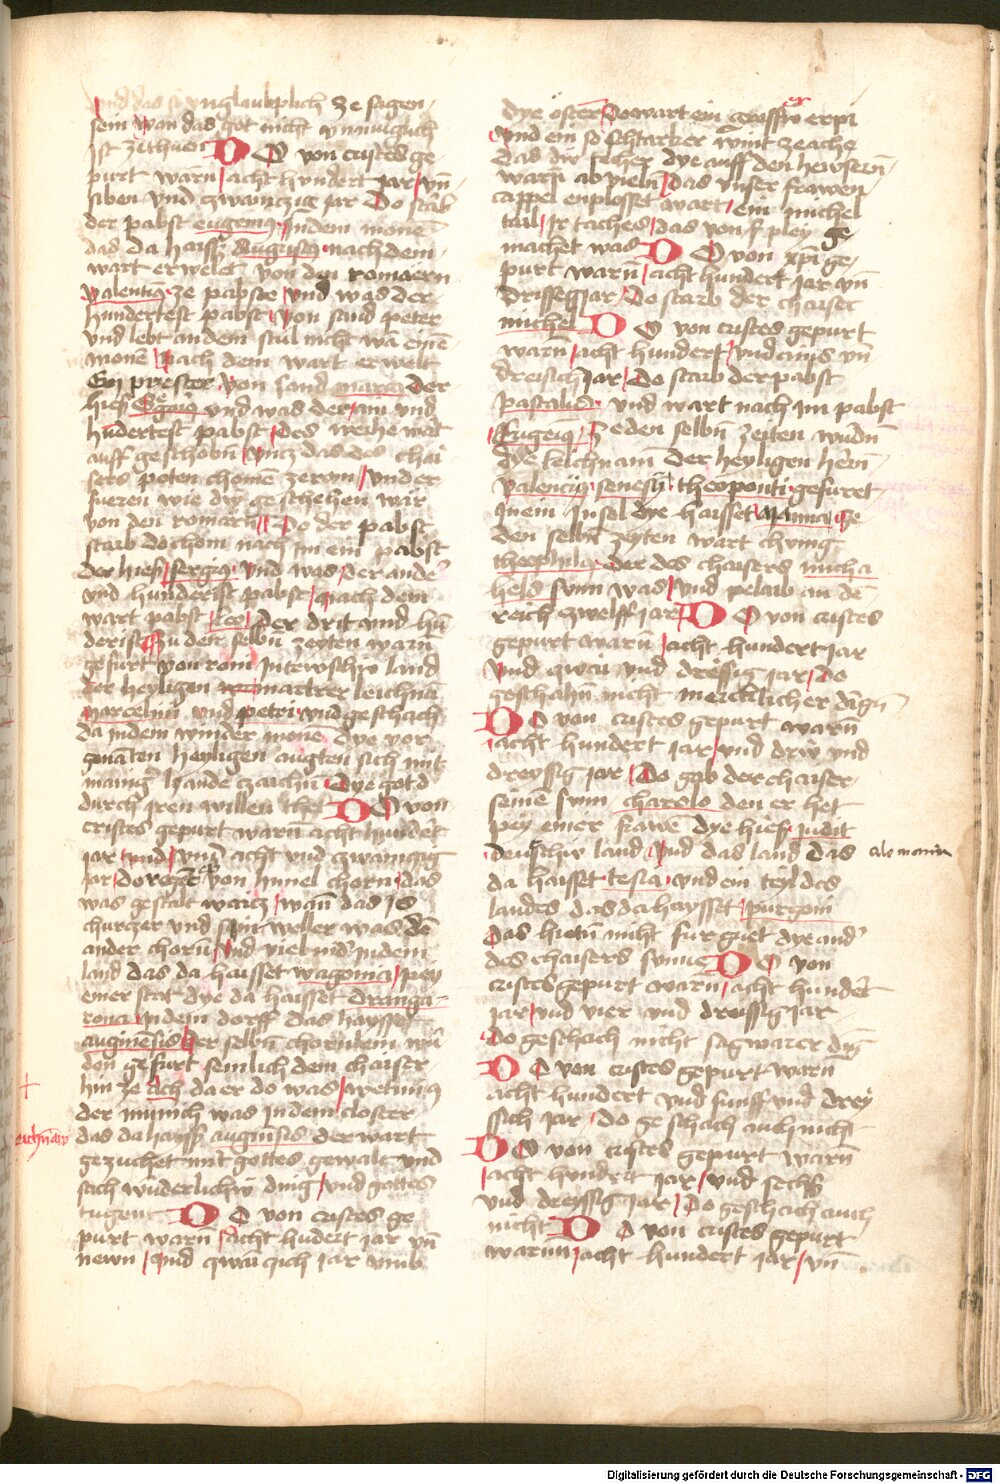 und das ist vnglauplich ze sagen
sein wan das got nicht vnmuglich
ist zethuen Do von cristes ge
purt warn acht hundert Jar vn̄
siben vnd czwainczig jar Do starb
der pabst eugenius Indem mone
das da haist Augustus nach dem
wart erwelt von den romaern
valentinus ze pabste vnd was der
hundertest pabst von sand peter
vnd lebt an dem stul nicht wan eine
mone Nach dem wart erwelt
Ein priester von sand marco der
hies Gregorius vnd was der am vnd
hundertest pabst des weihe wart
auff geschobn vntz das des chai
sers poten chomen ze rom vnd er
fueren wie dy geschehen wär
von den romarn Do der pabst
starb do chom nach im ein pabst
der hies sergius vnd was der ander
vnd hunderist pabst nach dem
wart pabst Leo der drit vnd hun
derist Zu den selbn zeyten warn
gefurt von rom In tewschw land
der heyligen martrer leichnam
Marcelini vnd petri vnd geschach
da indem winder mone dye vor
genanten heyligen augten sich mit
maniger hande zaichn Dye got d
durch iren willen thet Do von
cristes gepurt warn acht hundert
jar vnd vnd acht vnd czwainczig
jar do regent es von himel chorn das
was gestalt waicz wann das is
churczer vnd sinweller was den
ander chorn vnd viel nider indem
land das da haisset wagonia pey
einer stat dye da haisset dranga-
rona indem dorff das haysset
auginensis der selbn chornlein wur
den gefurt semlich dem chaiser
hin ze ach da er do was wetinus
der munich was indem closter
das da hayst auginsis der wart
gezuchet mit gottes gewalt vnd
sach wunderlichw ding vnd gottes
tugent Do von cristes ge
purt warn acht hundert jar vn̄
newn vnd zwainczich jar vmb
dye ostern do wart ein grosser erpi
vnd ein so schtarcker wint ze ache
das die techer dye auff den hewsern
warn abvieln das vnser frawen
cappel enplosset wart ein michel
tail Ir taches das von pley ge
machet was Do von xpi ge
purt warn acht hundert jar vn̄
drissig jar Do starb der chaiser
michel Do von cristes gepurt
warn acht hundert vnd ains vn̄
dreisich Jar Do starb der pabst
Pastalis vnd wart nach im pabst
Eugenius Ze den selbn zeiten wurdn
dye leichnam der heyligen hern
valencii senesii theoponti gefuret
in ein Insel dye haisset Manna Ze
den selbn zeyten wart chunig
theophilo der des chaisers micha
hels sun was vnd pelaib an dem
reich zwelff jar Do von cristes
gepurt warn acht hundert jar
vnd zwai vnd dreissig jar Do
geschahn nicht merckleicher dingn
Do von cristes gepurt warn
acht hundert jar vnd drw vnd
dreyssig jar Do gab der chaiser
seinē sunn charolo den er het
pey einer frawē dye hies Judit
deutschw land vnd das land das
alemania
da haisset resia vnd ein teyl des
landes das da haysset purgoin
das hietn nicht fur guet dye andn
des chaisers sunne Do von
cristes gepurt warn acht hundert
jar vnd vier vnd dreissig jar
do geschach nicht sagwarer ding
Do von cristes gepurt warn
acht hundert vnd funff vnd drey
ssich jar Do geschach auch nicht
Do von cristes gepurt warn
acht hundert jar vnd sechs
vnd dreyssig jar Do geschach auch
nicht Do von cristes gepurt
warnn acht hundert jar vn̄
Digitalisierung gefördert durch die Deutsche Forschungsgemeinschaft - DFG